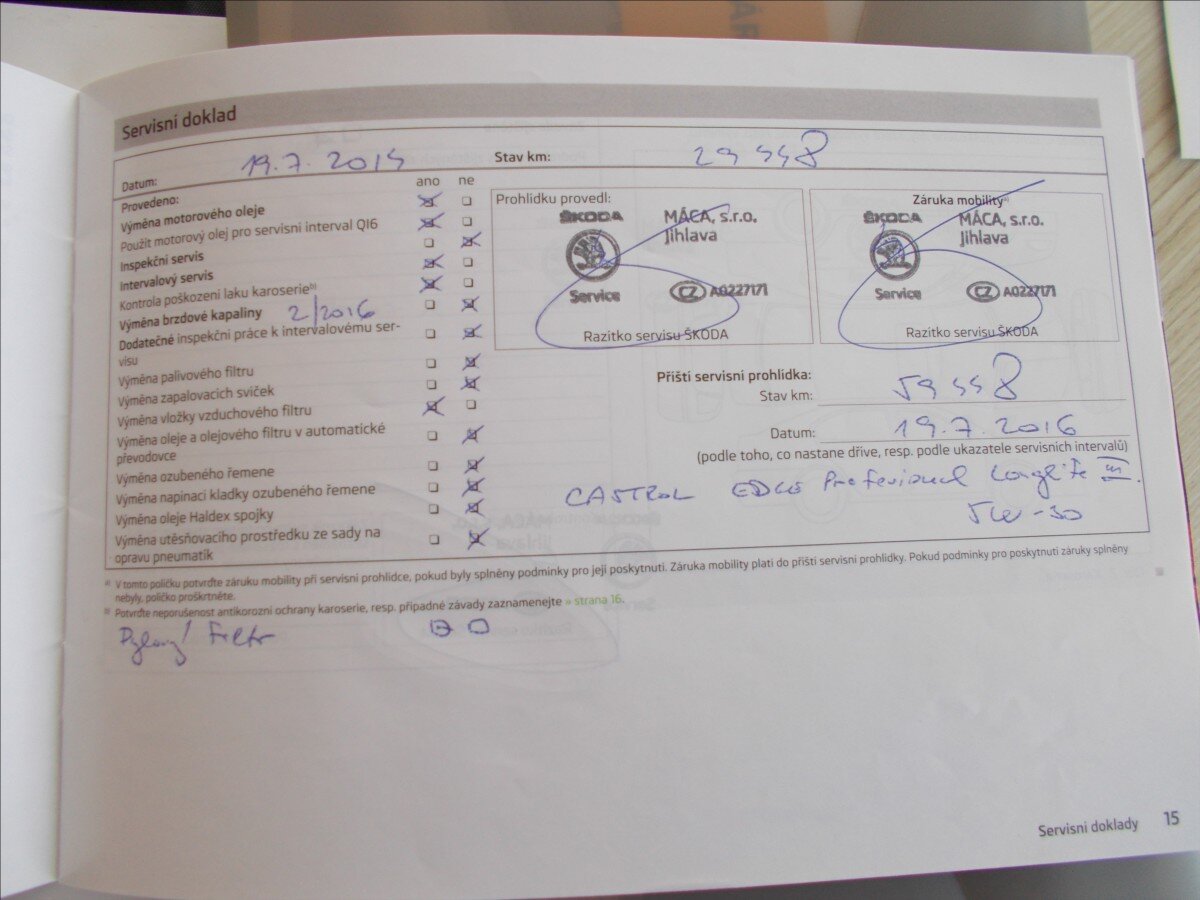 Servisní doklad
Datum: 19.7.2015 Stav km: 29 558
ano ne
Provedeno:
Výměna motorového oleje
Použit motorový olej pro servisní interval QI6
Inspekční servis
Intervalový servis
Kontrola poškození laku karoserie b)
Výměna brzdové kapaliny 2/2016
Dodatečné inspekční práce k intervalovému ser-
visu
Výměna palivového filtru
Výměna zapalovacích svíček
Výměna vložky vzduchového filtru
Výměna oleje a olejového filtru v automatické
převodovce
Výměna ozubeného řemene
Výměna napínací kladky ozubeného řemene
Výměna oleje Haldex spojky
Výměna utěsňovacího prostředku ze sady na
opravu pneumatik
Prohlídku provedl:
ŠKODA MÁCA, s.r.o.
Jihlava
Service CZ A0227171
Razítko servisu ŠKODA
Záruka mobility a)
ŠKODA MÁCA, s.r.o.
Jihlava
Service CZ A0227171
Razítko servisu ŠKODA
Příští servisní prohlídka:
Stav km: 59 558
Datum: 19.7.2016
(podle toho, co nastane dříve, resp. podle ukazatele servisních intervalů)
CASTROL EDGE Professional Longlife III.
5W-30
a) V tomto políčku potvrďte záruku mobility při servisní prohlídce, pokud byly splněny podmínky pro její poskytnutí. Záruka mobility platí do příští servisní prohlídky. Pokud podmínky pro poskytnutí záruky splněny
nebyly, políčko proškrtněte.
b) Potvrďte neporušenost antikorozní ochrany karoserie, resp. případné závady zaznamenejte » strana 16.
Pylový Filtr
Servisní doklady 15